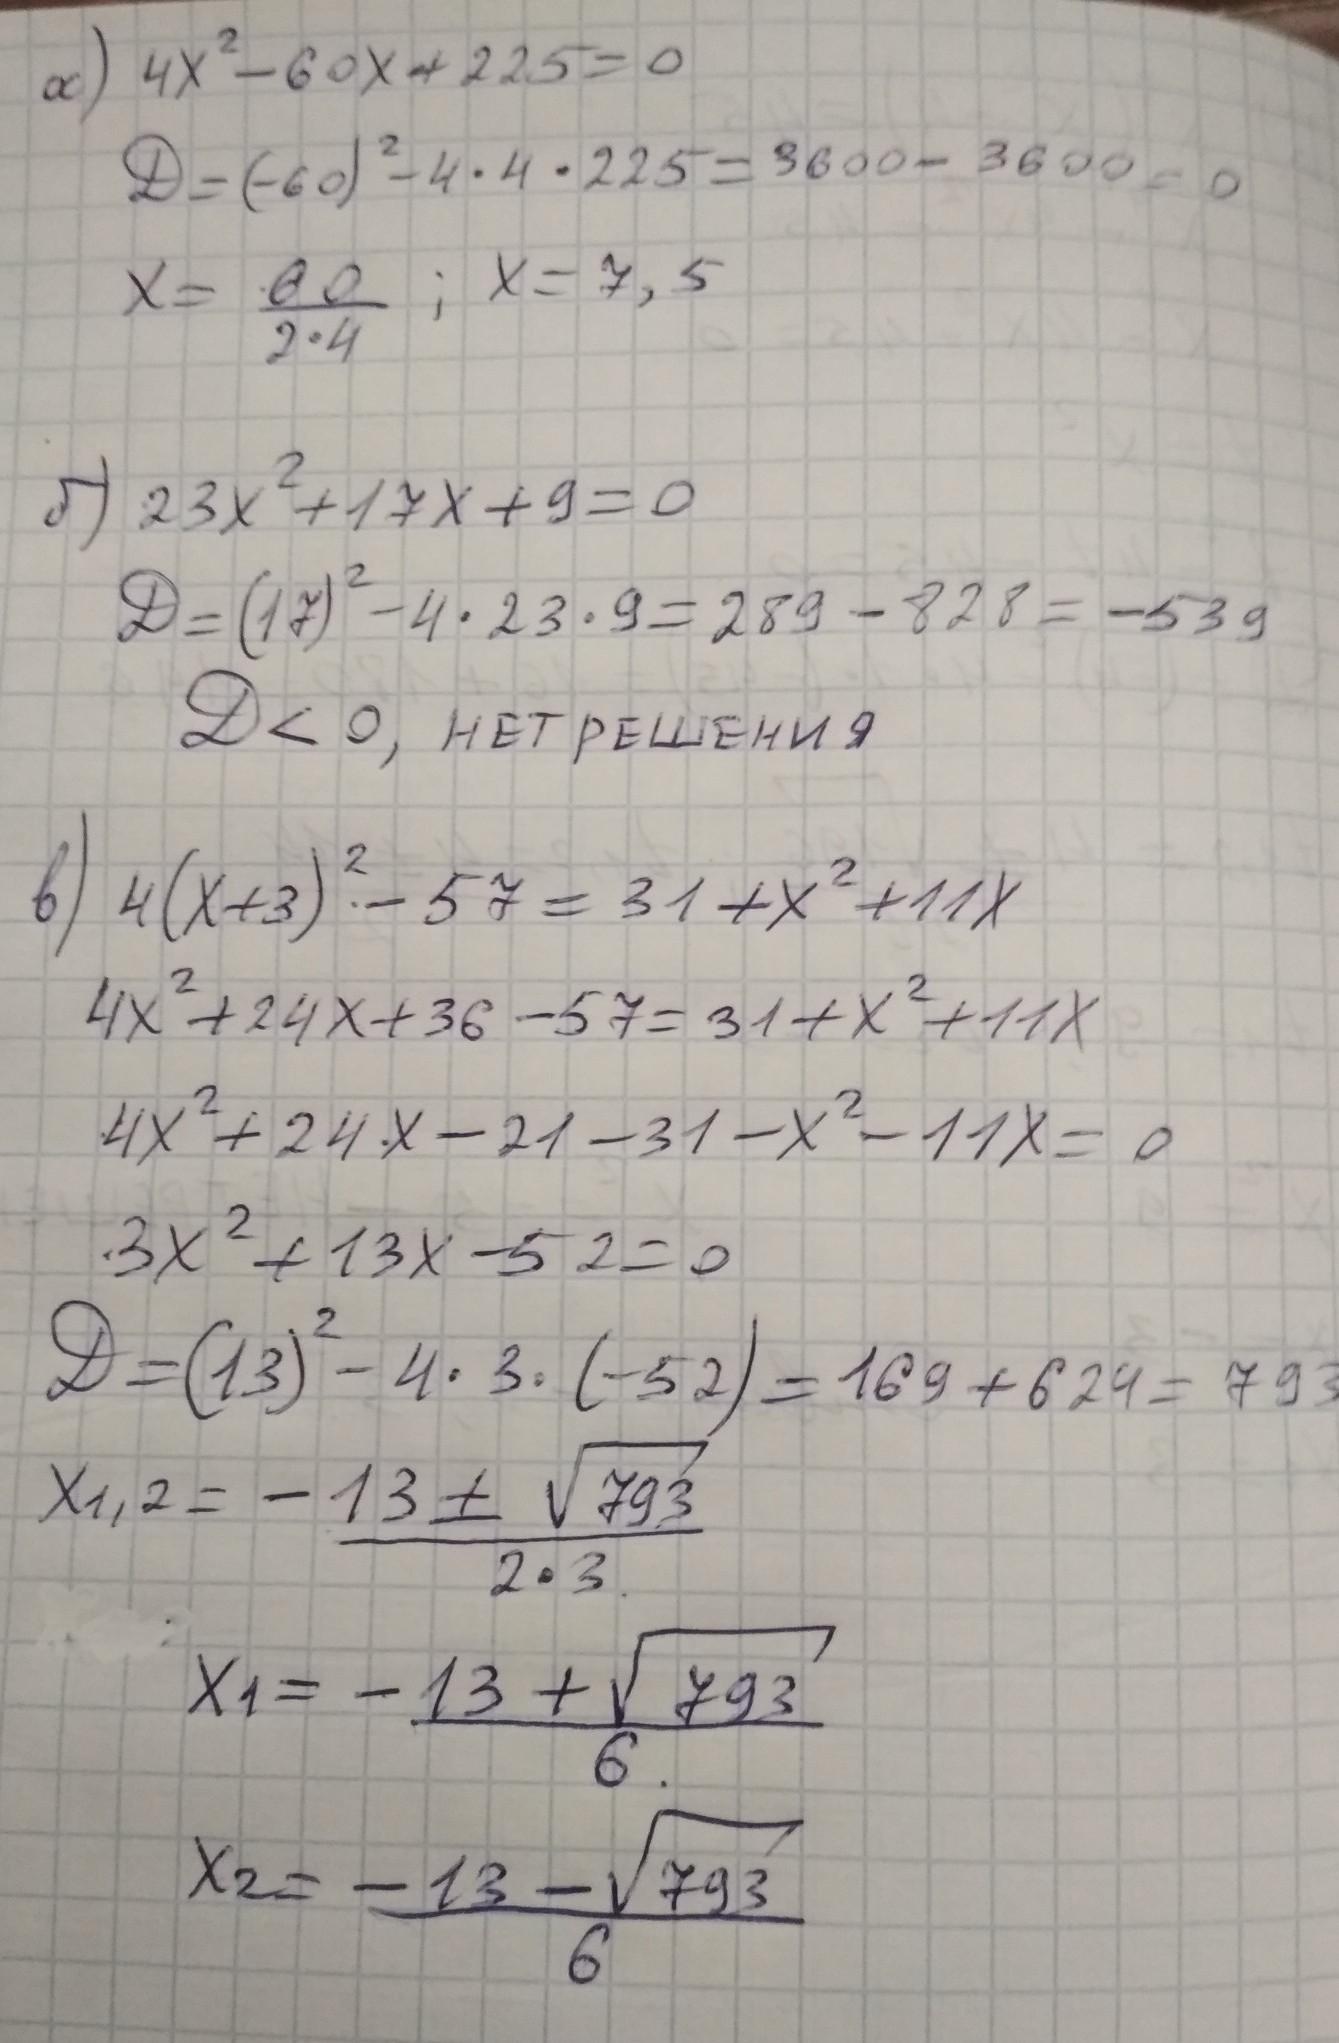 а) 4x² - 60x + 225 = 0
D = (-60)² - 4 · 4 · 225 = 3600 - 3600 = 0
x = 60/(2·4) ; x = 7,5
б) 23x² + 17x + 9 = 0
D = (17)² - 4 · 23 · 9 = 289 - 828 = -539
D < 0, НЕТ РЕШЕНИЯ
в) 4(x+3)² - 57 = 31 + x² + 11x
4x² + 24x + 36 - 57 = 31 + x² + 11x
4x² + 24x - 21 - 31 - x² - 11x = 0
3x² + 13x - 52 = 0
D = (13)² - 4 · 3 · (-52) = 169 + 624 = 793
x1,2 = (-13 ± √793)/(2·3)
x1 = (-13 + √793)/6
x2 = (-13 - √793)/6